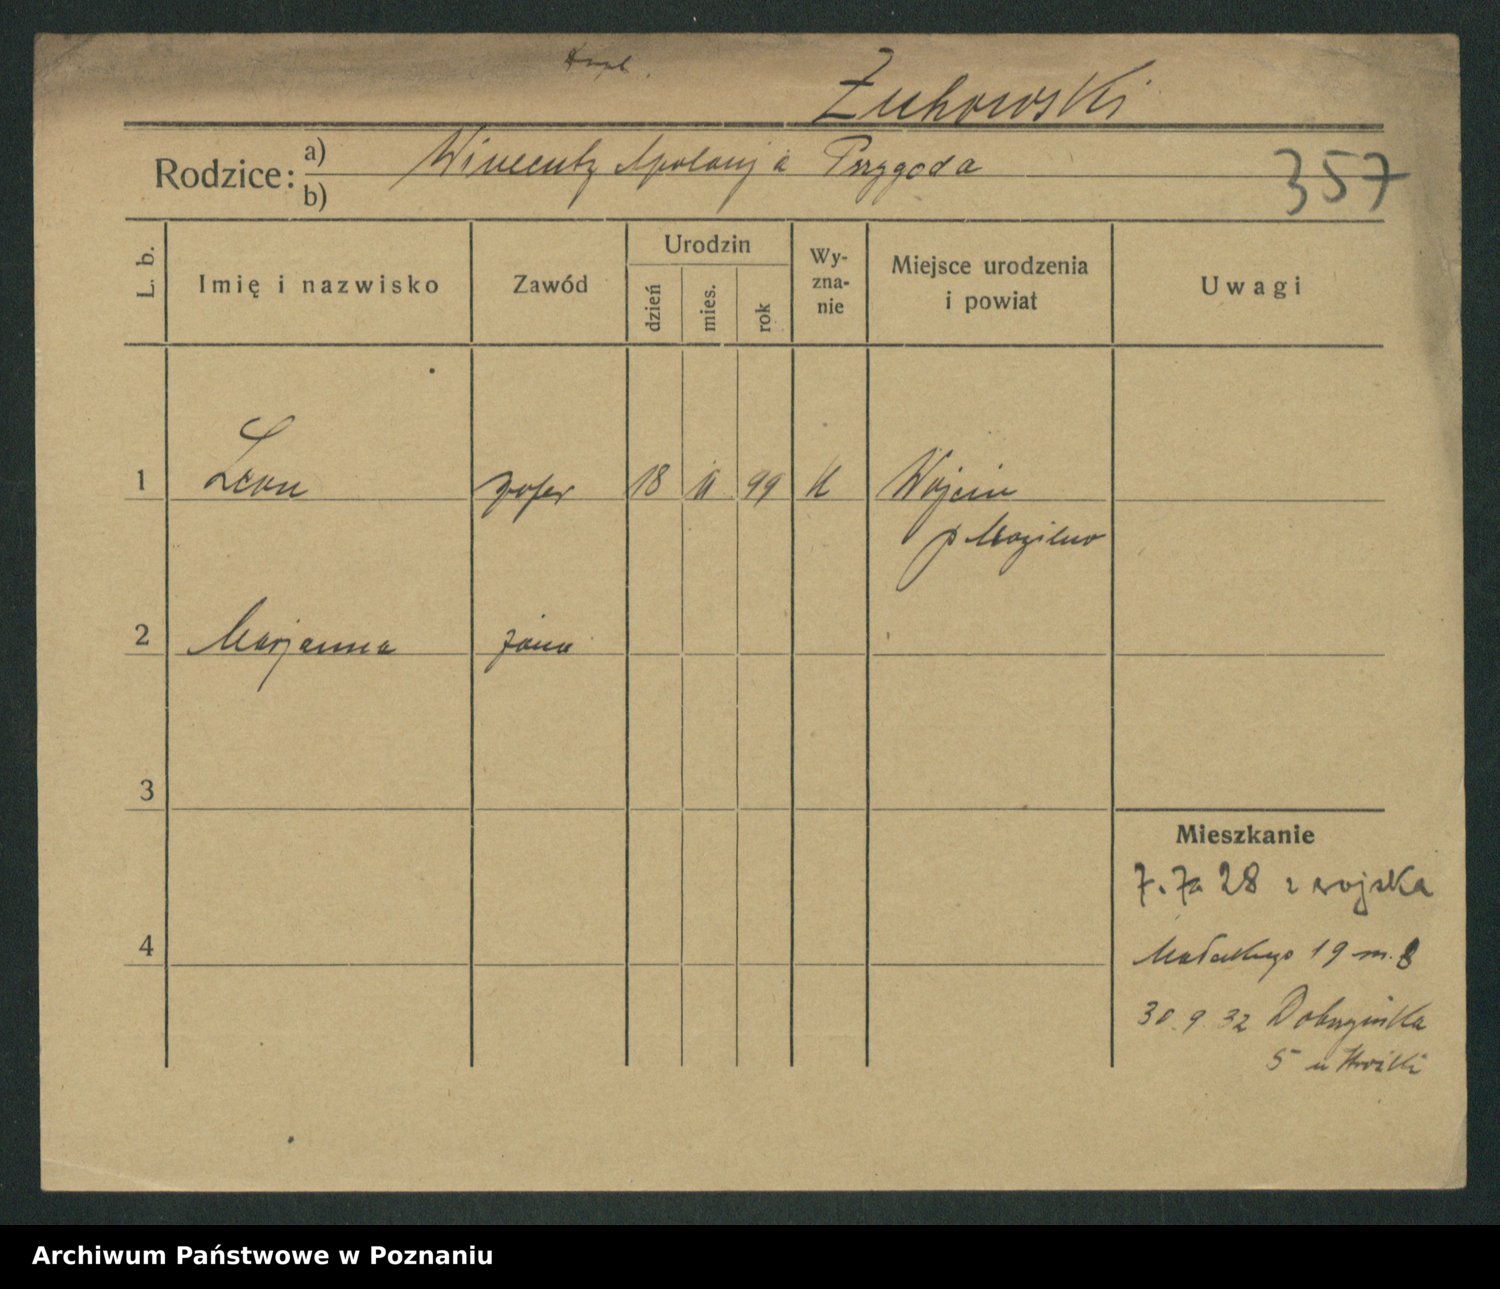 Żuhowski
Rodzice: a) Wincenty Apolonja Przygoda
b)
357
L. b.
Imię i nazwisko
Zawód
Urodzin
dzień
mies.
rok
Wy-
zna-
nie
Miejsce urodzenia
i powiat
Uwagi
1 Leon szofer 18 II 99 K Wójcin
p Mogilno
2 Marjanna żona
3
Mieszkanie
7. 7a 28 z wojska
4
Małeckiego 19 m. 8
30. 9 32 Dobrzyńska
5 u
Archiwum Państwowe w Poznaniu